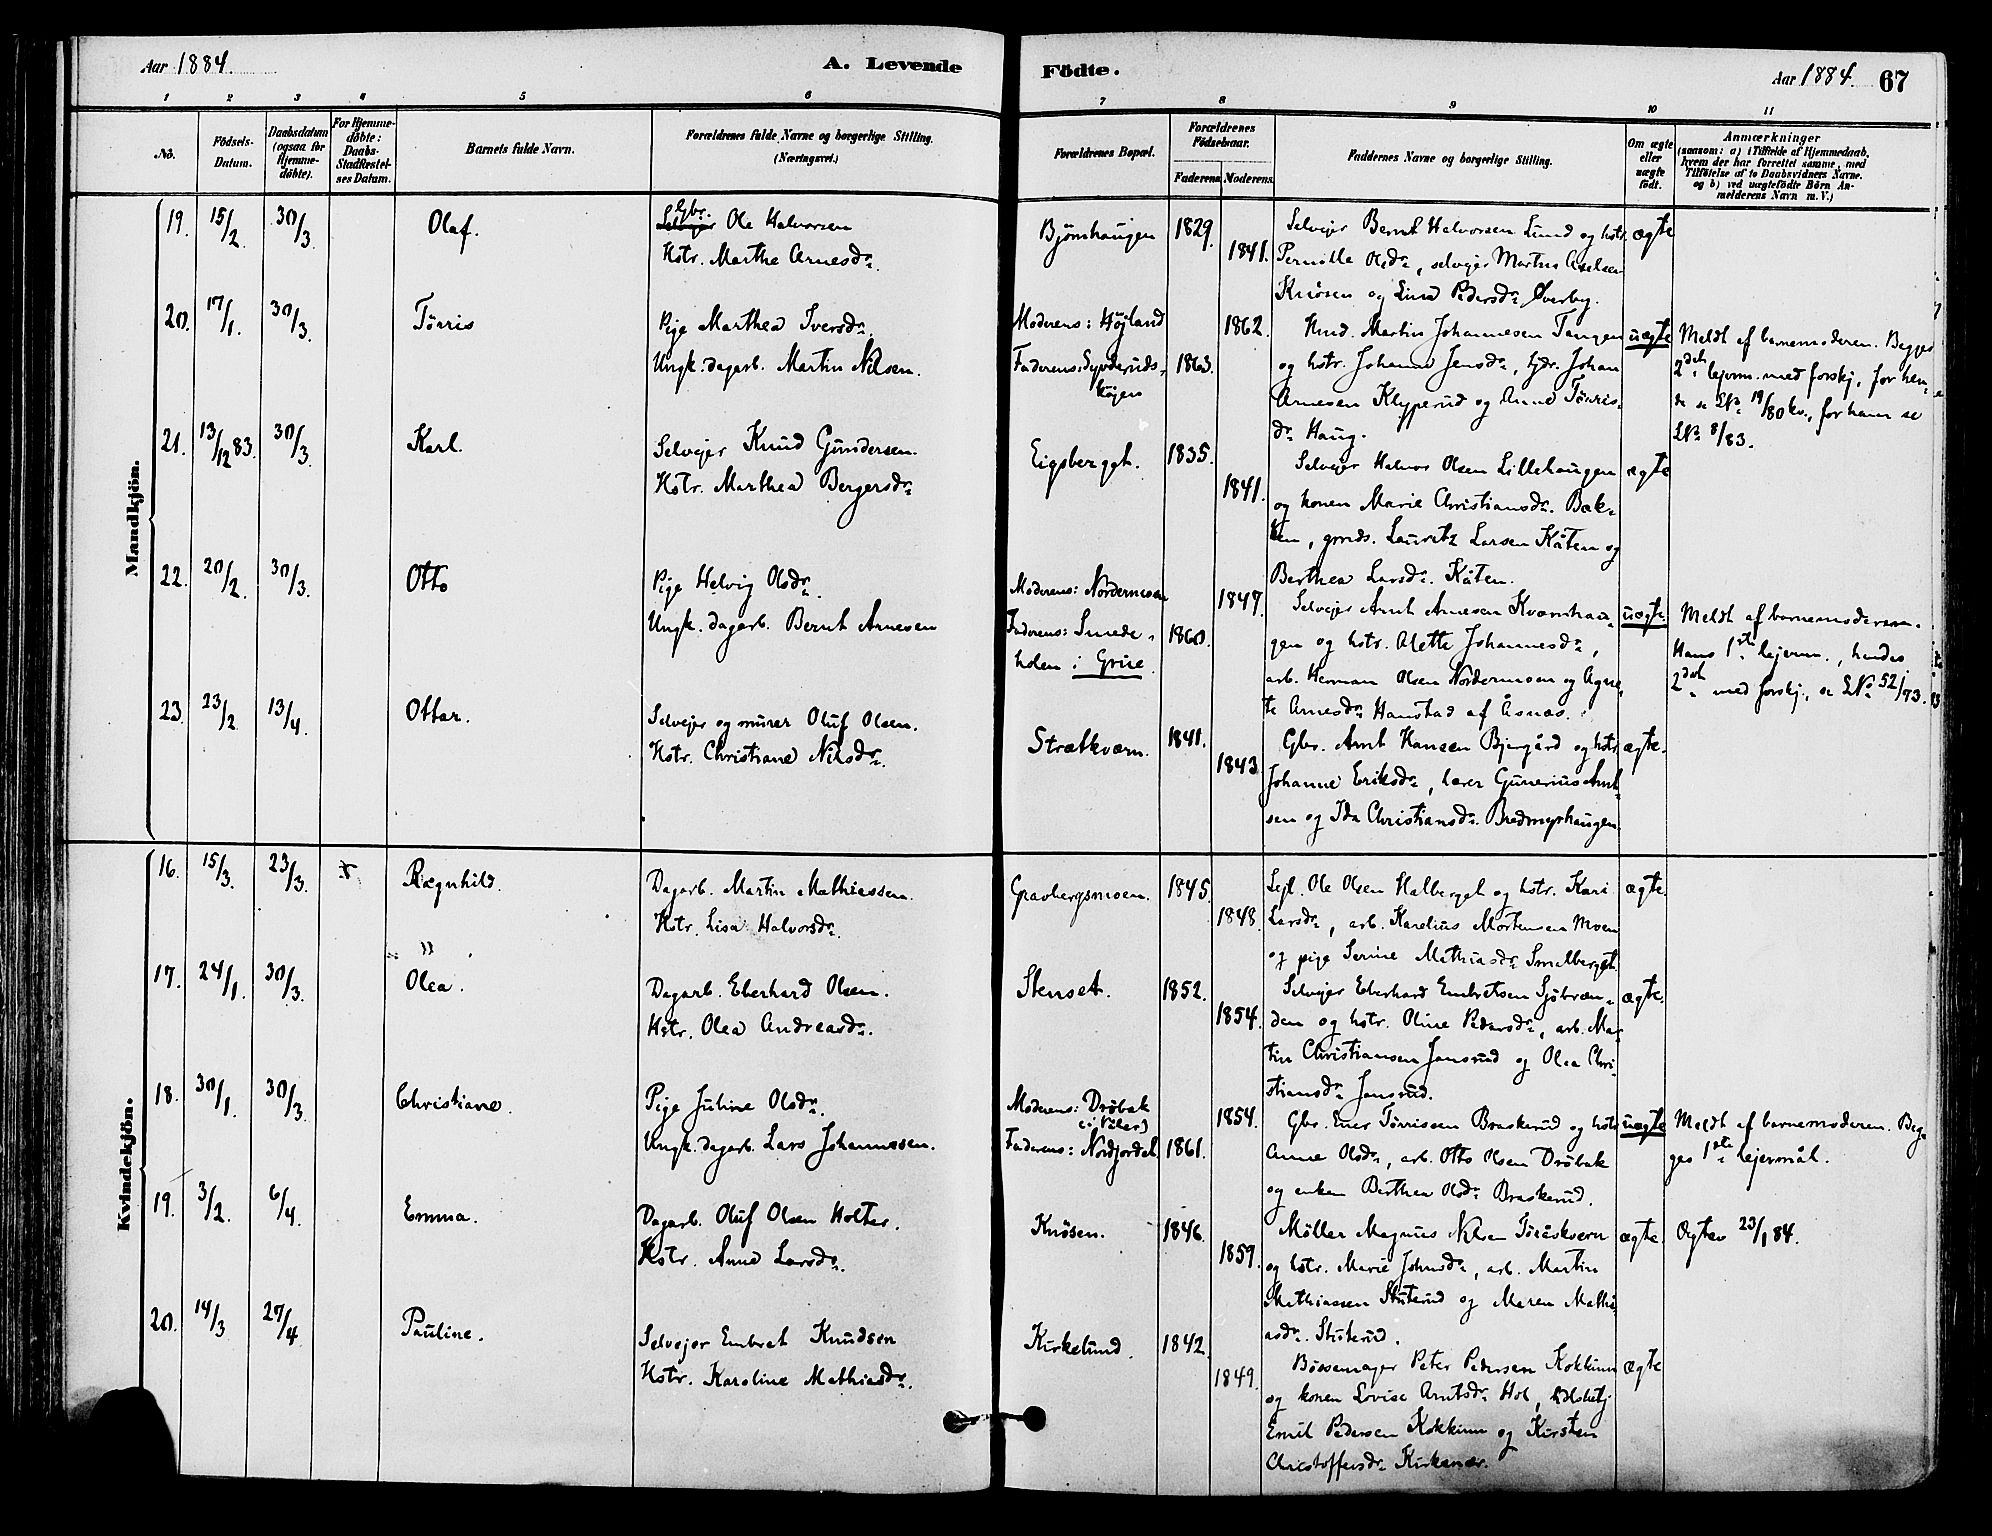 Aar 1884. A. Levende Födte. Aar 1884. 67
1 2 3 4 5 6 7 8 9 10 11
No. Födsels-Datum. Daabsdatum (ogsaa for Hjemmedöbte). For Hjemmedöbte: Daabs-Stadfæstelses Datum. Barnets fulde Navn. Forældrenes fulde Navne og borgerlige Stilling. (Næringsvei.) Forældrenes Bopæl. Forældrenes Födselsaar. Faderens. Moderens. Faddernes Navne og borgerlige Stilling. Om ægte eller uægte födt. Anmærkninger (saasom: a) i Tilfælde af Hjemmedaab, hvem der har forrettet samme, med Tilföielse af to Daabsvidners Navne, og b) ved uægtefödte Börn Anmelderens Navn m.V.)
Mandkjön.
19. 15/2. 30/3. Olaf.
Gbr.
Selvejer Ole Halvorsen
Hstr. Marthe Arnesdr.
Bjørnhaugen 1829. 1841.
Selvejer Bernt Halvorsen Lund og hstr.
Pernille Olsdr., selvejer Martin Axelsen
Knøsen og Lina Pedersdr. Øverby.
ægte
20. 17/1. 30/3. Tørris
Pige Marthea Iversdr.
Ungk. dagarb. Martin Nilsen.
Moderens: Højland
Faderens: Sywderuds-
skogen
1863. 1862.
Hmd. Martin Johannesen Tangen
og hstr. Johanne Jensdr., tjdr. Johan
Arnesen Klypperud og Anne Tørris-
dr. Haug.
uægte
Meldt af barnemoderen. Begges
2det lejerm. med forskj., for hen-
de se LNr 19/80 kv., for ham se
LNr 8/83.
21. 13/12 83. 30/3. Karl.
Selvejer Knud Gundersen.
Hstr. Marthea Bergersdr.
Eigsberget. 1835. 1841.
Selvejer Halvor Olsen Lillehaugen
og konen Marie Christiansdr. Bak-
ken, gmds. Lauritz Larsen Kåten og
Berthea Larsdr. Kåten.
ægte
22. 20/2. 30/3. Otto
Pige Helvig Olsdr.
Ungk. dagarb. Bernt Arnesen
Moderens: Nordermoen
Faderens: Smede-
holen i Grue.
1860. 1847.
Selvejer Arnt Arnesen Kvarnhau-
gen og hstr. Mette Johannesdr.,
arb. Herman Olsen Nordermoen og Agne-
te Arnesdr. Hanstad af Åsnæs.
uægte.
Meldt af barnemoderen.
Hans 1ste lejerm., hendes
2det med forskj., se LNr 52/73.
23. 23/2 13/4. Ottar.
Selvejer og murer Oluf Olsen.
Hstr. Christiane Nilsdr.
Strætkværn. 1841. 1843.
Gbr. Arnt Hansen Bjergård og hstr.
Johanne Eriksdr., lærer Gunerius Arnt-
sen og Ida Christiansdr. Brødmyrhaugen.
ægte.
Kvindekjön.
16. 15/3. 23/3. Ragnhild.
Dagarb. Martin Mathiassen.
Hstr. Lisa Halvorsdr.
Gravbergsmoen. 1845. 1848.
Lejl. Ole Olsen Halberget og hstr. Kari
Larsdr., arb. Karelius Mortensen Moen
og pige Serine Mathiasdr. Smalberget.
ægte.
17. 24/1. 30/3. Olea.
Dagarb. Eberhard Olsen.
Hstr. Olea Andreasdr.
Stenset. 1852. 1854.
Selvejer Eberhard Embretsen Sjøbræn-
den og hstr. Oline Pedersdr., arb. Mar-
tin Christiansen Jansrud og Olea Chri-
stiansdr. Jansrud.
ægte.
18. 30/1. 30/3. Christiane.
Pige Juline Olsdr.
Ungk. dagarb. Lars Johannesen.
Moderens: Drøbak
(i Våler)
Faderens: Nordjordet
1861. 1854.
Gbr. Iver Tørrissen Braskerud og hstr.
Anne Olsdr., arb. Otto Olsen Drøbak
og enken Berthea Olsdr. Braskerud.
uægte
Meldt af barnemoderen. Beg-
ges 1ste lejersmål.
19. 3/2. 6/4. Emma.
Dagarb. Oluf Olsen Holter.
Hstr. Anne Larsdr.
Knøsen. 1846. 1859.
Møller Magnus Nilsen Toråskvern
og hstr. Marie Johnsdr., arb. Martin
Mathiassen Stuterud og Maren Mathi-
asdr. Stuterud.
ægte.
Ægtev. 23/1 84.
20. 14/3 27/4 Pauline.
Selvejer Embret Knudsen
Hstr. Karoline Mathiasdr.
Kirkelund. 1842. 1849.
Bøssemager Peter Pedersen Kokkinn
og konen Lovise Arntsdr. Hol,
Emil Pedersen Kokkinn og Kirsten
Christoffersdr. Kirkenær.
ægte